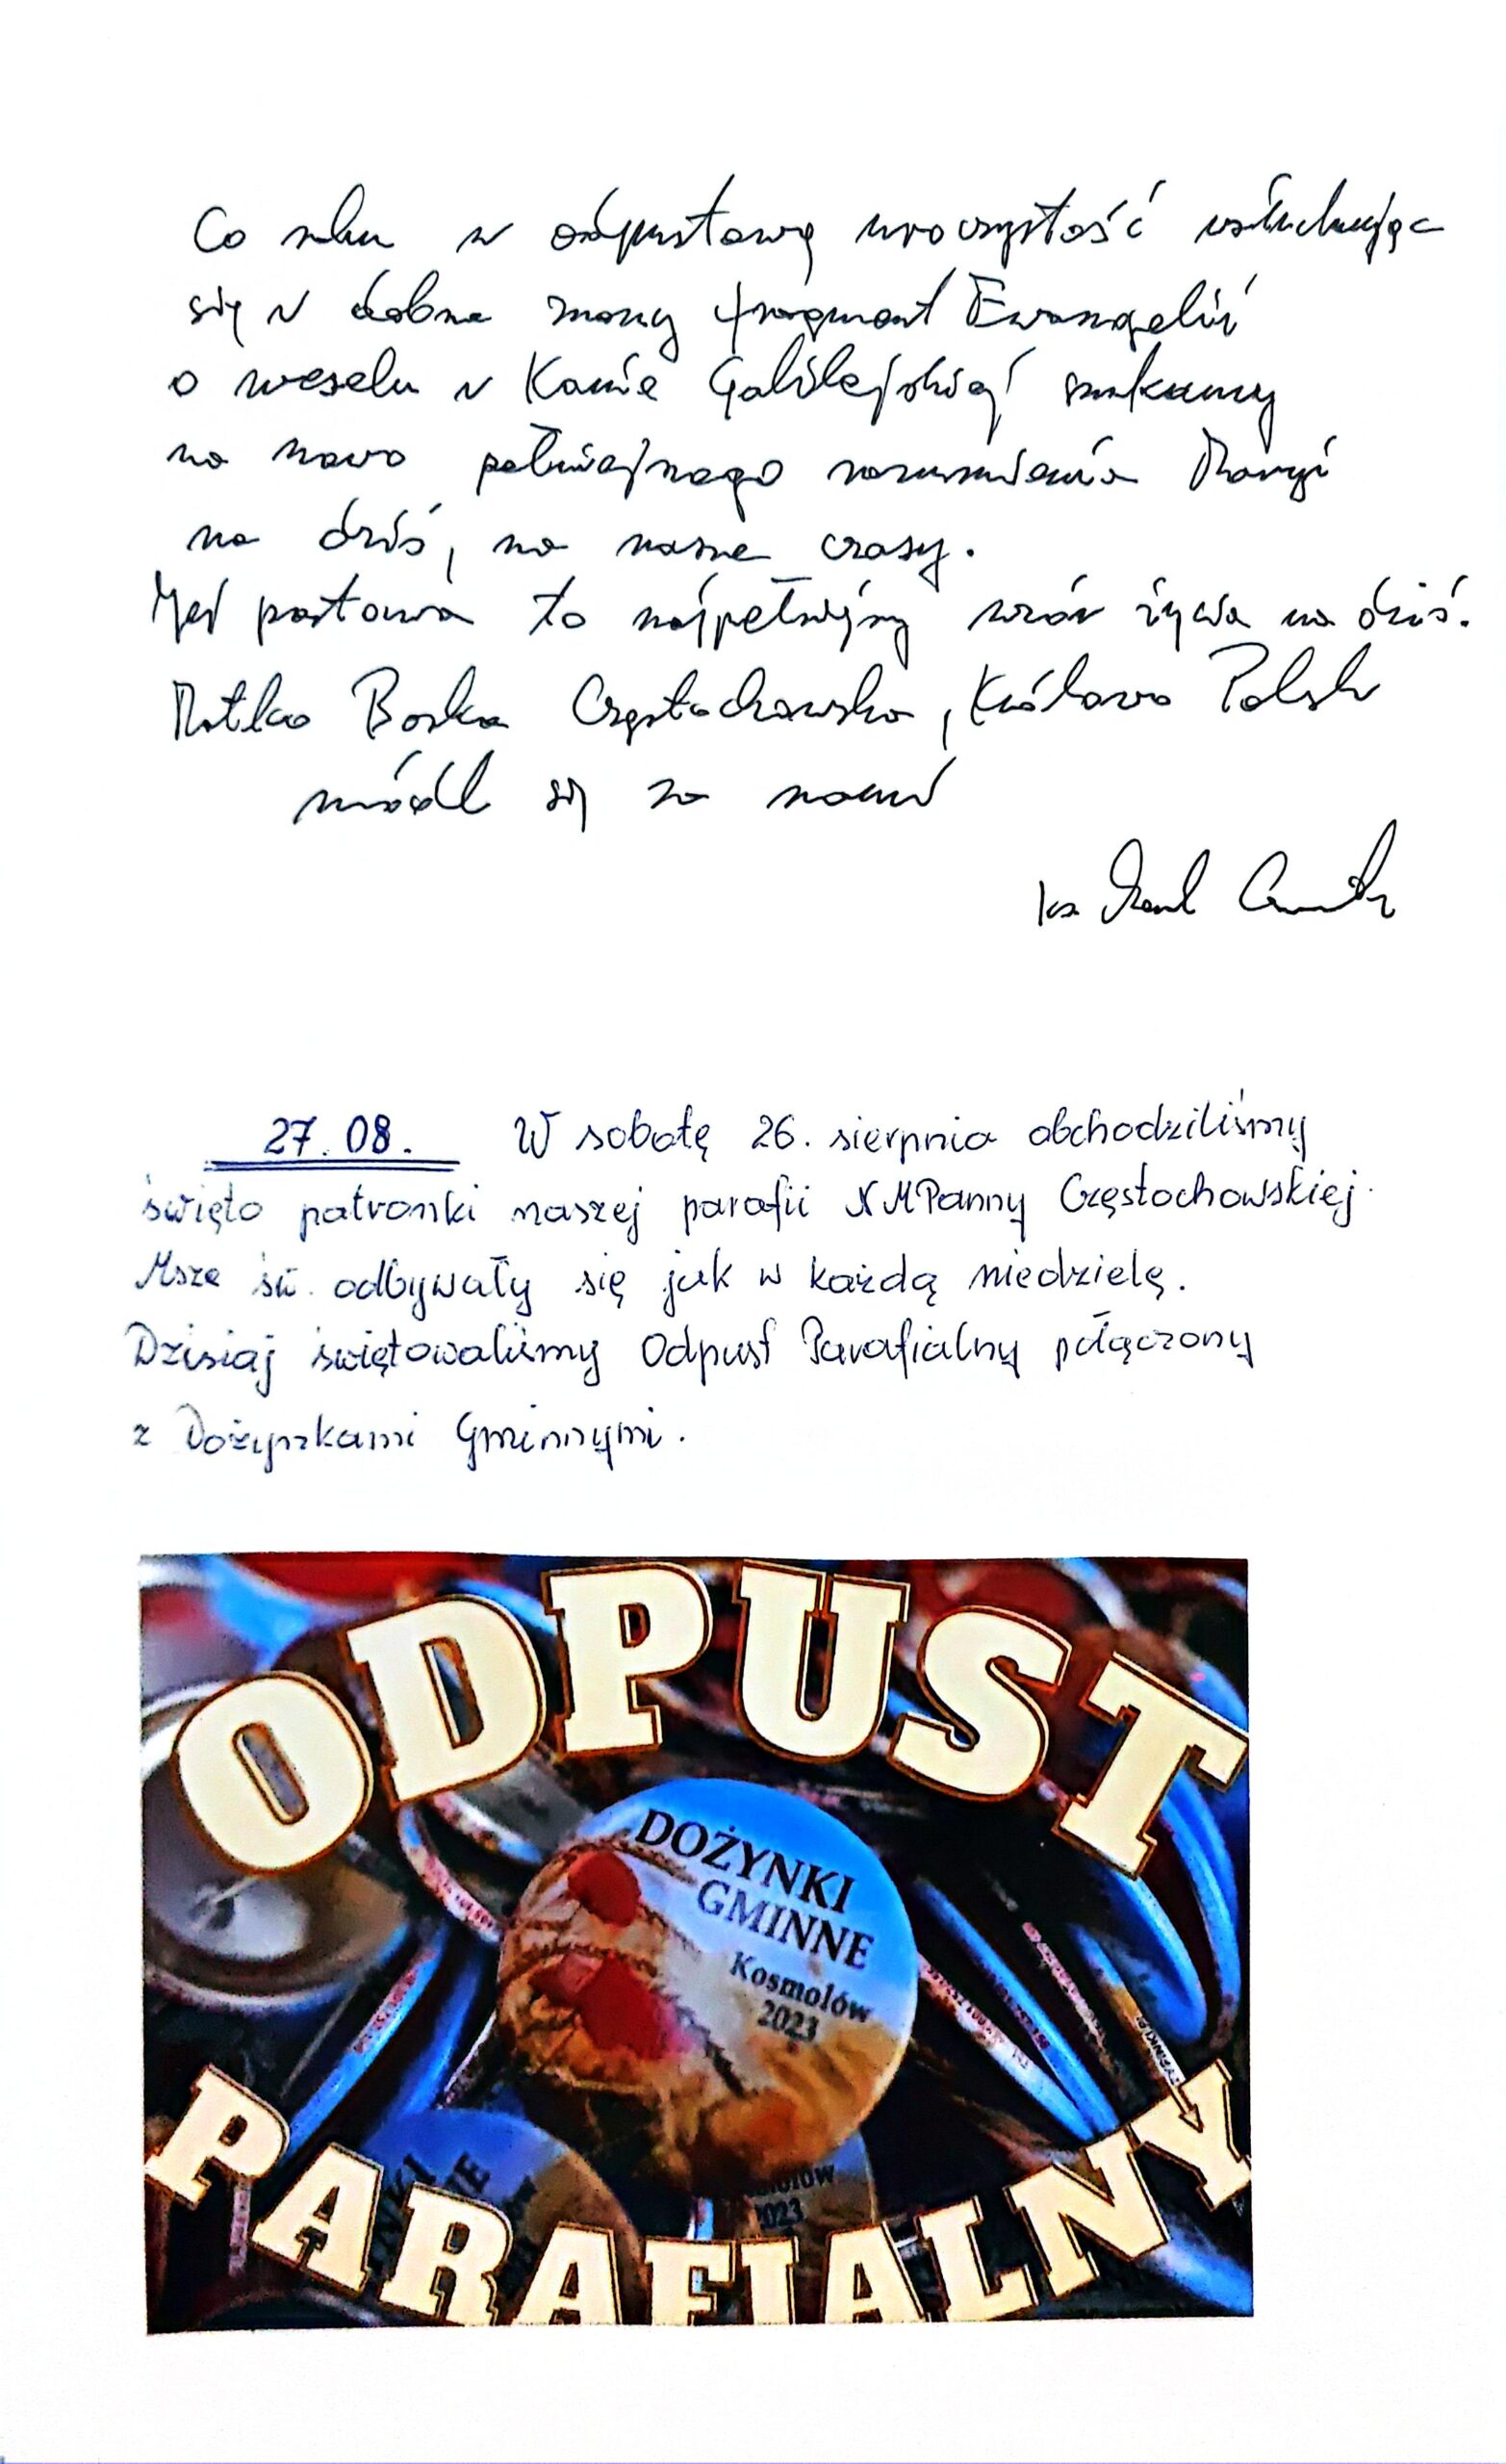 Co roku w odpustową uroczystość wsłuchując
się w dobrze znany fragment Ewangelii
o weselu w Kanie Galilejskiej szukamy
na nowo pełniejszego rozumienia Maryi
na dziś, na nasze czasy.
Jej postawa to najpełniejszy wzór życia na dziś.
Matko Boska Częstochowska, Królowo Polski
módl się za nami
ks.
27.08. W sobotę 26. sierpnia obchodziliśmy
święto patronki naszej parafii NMPanny Częstochowskiej.
Msze św. odbywały się jak w każdą niedzielę.
Dzisiaj świętowaliśmy Odpust Parafialny połączony
z Dożynkami Gminnymi.
ODPUST
DOŻYNKI
GMINNE
Kosmolów
2023
PARAFIALNY